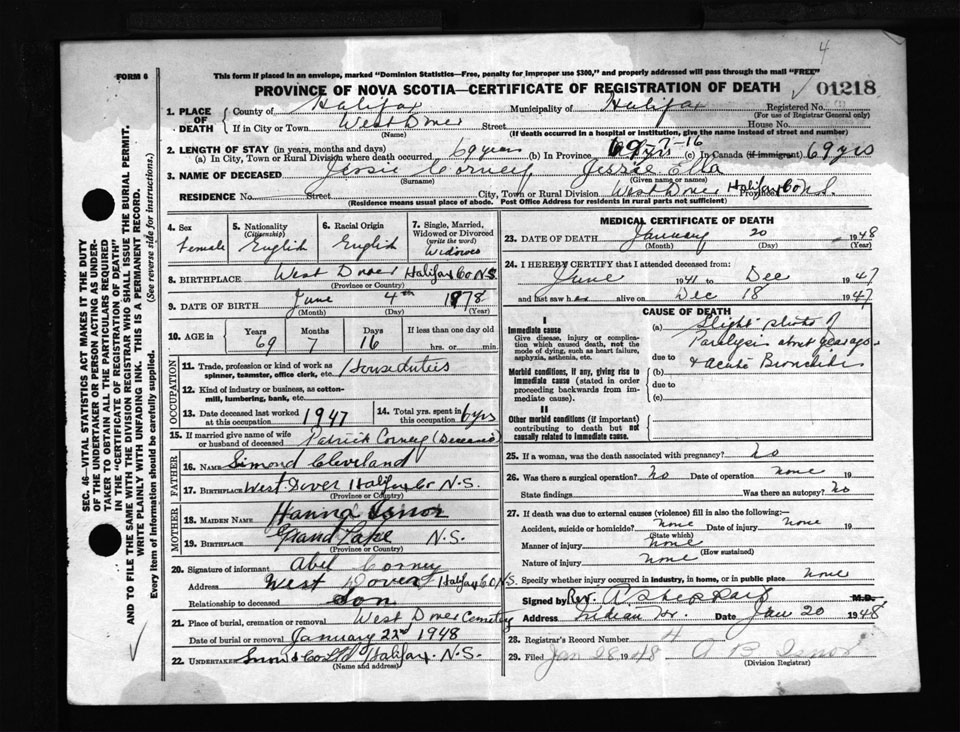 4
FORM 6
This form if placed in an envelope, marked "Dominion Statistics—Free, penalty for improper use $300," and properly addressed will pass through the mail "FREE"
PROVINCE OF NOVA SCOTIA—CERTIFICATE OF REGISTRATION OF DEATH ✓ 01218
1. PLACE OF DEATH County of Halifax Municipality of Halifax Registered No.
(For use of Registrar General only)
If in City or Town West Dover Street House No.
(Name) (If death occurred in a hospital or institution, give the name instead of street and number)
2. LENGTH OF STAY (in years, months and days) 69-7-16
(a) In City, Town or Rural Division where death occurred 69 years (b) In Province 69 yrs (c) In Canada (if immigrant) 69 yrs
3. NAME OF DECEASED Jessie Corney Jessie Ella
(Surname) (Given name or names)
RESIDENCE No. Street City, Town or Rural Division West Dover Province Halifax Co N.S.
(Residence means usual place of abode. Post Office Address for residents in rural parts not sufficient)
4. Sex Female
5. Nationality (Citizenship) English
6. Racial Origin English
7. Single, Married, Widowed or Divorced (write the word) Widowed
8. BIRTHPLACE West Dover Halifax Co N.S.
(Province or Country)
9. DATE OF BIRTH June 4th 1878
(Month) (Day) (Year)
10. AGE in Years Months Days If less than one day old
69 7 16 hrs. or min.
OCCUPATION
11. Trade, profession or kind of work as spinner, teamster, office clerk, etc. House duties
12. Kind of industry or business, as cotton-mill, lumbering, bank, etc.
13. Date deceased last worked at this occupation 1947
14. Total yrs. spent in this occupation 6 yrs
15. If married give name of wife or husband of deceased Patrick Corney
FATHER
16. NAME Simond Cleveland
17. BIRTHPLACE West Dover Halifax Co N.S.
(Province or Country)
MOTHER
18. MAIDEN NAME Hanna
19. BIRTHPLACE Grand Lake N.S.
(Province or Country)
20. Signature of informant Abel Corney
Address West Dover Halifax Co N.S.
Relationship to deceased Son
21. Place of burial, cremation or removal West Dover Cemetery
Date of burial or removal January 22nd 1948
22. UNDERTAKER Snow & Co Ltd Halifax. N.S.
(Name and address)
MEDICAL CERTIFICATE OF DEATH
23. DATE OF DEATH January 20 1948
(Month) (Day) (Year)
24. I HEREBY CERTIFY that I attended deceased from:
June 1941 to Dec 1947
and last saw her alive on Dec 18 1947
CAUSE OF DEATH
I
Immediate cause
Give disease, injury or complication which caused death, not the mode of dying, such as heart failure, asphyxia, asthenia, etc.
Morbid conditions, if any, giving rise to immediate cause (stated in order proceeding backwards from immediate cause).
II
Other morbid conditions (if important) contributing to death but not causally related to immediate cause.
(a) Slight stroke of
Paralysis about year ago
due to & acute Bronchitis
(b)
due to
(c)
25. If a woman, was the death associated with pregnancy? No
26. Was there a surgical operation? No Date of operation none 19
State findings Was there an autopsy? No
27. If death was due to external causes (violence) fill in also the following:—
Accident, suicide or homicide? none Date of injury none 19
(State which)
Manner of injury none
(How sustained)
Nature of injury none
Specify whether injury occurred in industry, in home, or in public place none
Signed by Rev. A Sheppard M.D.
Address Indian Hr. Date Jan 20 1948
28. Registrar's Record Number 4
29. Filed Jan 28 1948 A B
(Division Registrar)
SEC. 46—VITAL STATISTICS ACT MAKES IT THE DUTY
OF THE UNDERTAKER OR PERSON ACTING AS UNDERTAKER TO OBTAIN ALL THE PARTICULARS REQUIRED
IN THE "CERTIFICATE OF REGISTRATION OF DEATH"
AND TO FILE THE SAME WITH THE DIVISION REGISTRAR WHO SHALL ISSUE THE BURIAL PERMIT.
WRITE PLAINLY WITH UNFADING INK. THIS IS A PERMANENT RECORD.
Every item of information should be carefully supplied. (See reverse side for instructions.)